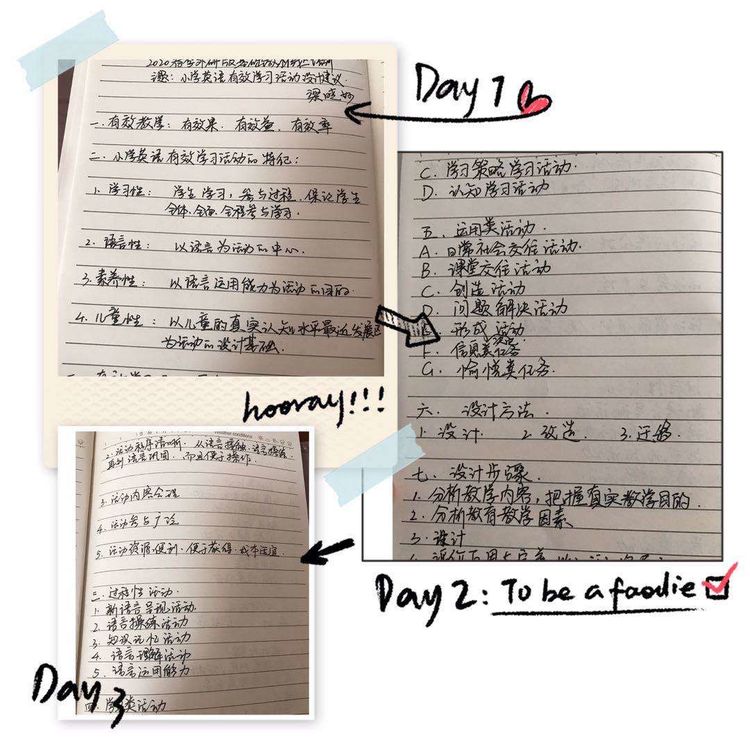 课题：小学英语有效学习活动设计建议
Day 1
一. 有效教学：有效果. 有效益. 有效率
二. 小学英语有效学习活动的特征：
1. 学习性： 学生学习，参与过程. 保证学生
全体. 全面. 全程参与学习.
2. 语言性： 以语言为活动的中心.
3. 素养性： 以语言运用能力为活动的目的.
4. 儿童性： 以儿童的真实认知水平最近发展区
为活动的设计基础.
hooray!!!
C. 学习策略学习活动.
D. 认知学习活动
五. 运用类活动.
A. 日常社会交往活动.
B. 课堂交往活动
C. 创造活动
D. 问题解决活动
E. 形成 活动
F. 信息类任务
G. 愉悦类任务.
六. 设计方法.
1. 设计. 2. 改造. 3. 迁移.
七. 设计步骤.
1. 分析教学内容，把握真实教学目的.
2. 分析教育教学因素
3. 设计
Day 2: To be a foodie
2. 活动程序清晰. 从语言接触.
到语言巩固. 而且便于操作.
3. 活动内容合理
4. 活动参与广泛
5. 活动资源便利. 便于获得. 成本适宜
三. 过程性活动.
1. 新语言呈现活动.
2. 语言操练活动
3. 知识记忆活动
4. 语言理解活动
5. 语言运用能力
四. 学习类活动
Day 3